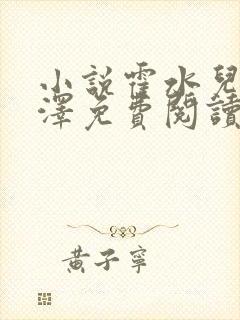 小說霍水兒
澤免費閱讀
黃子寧